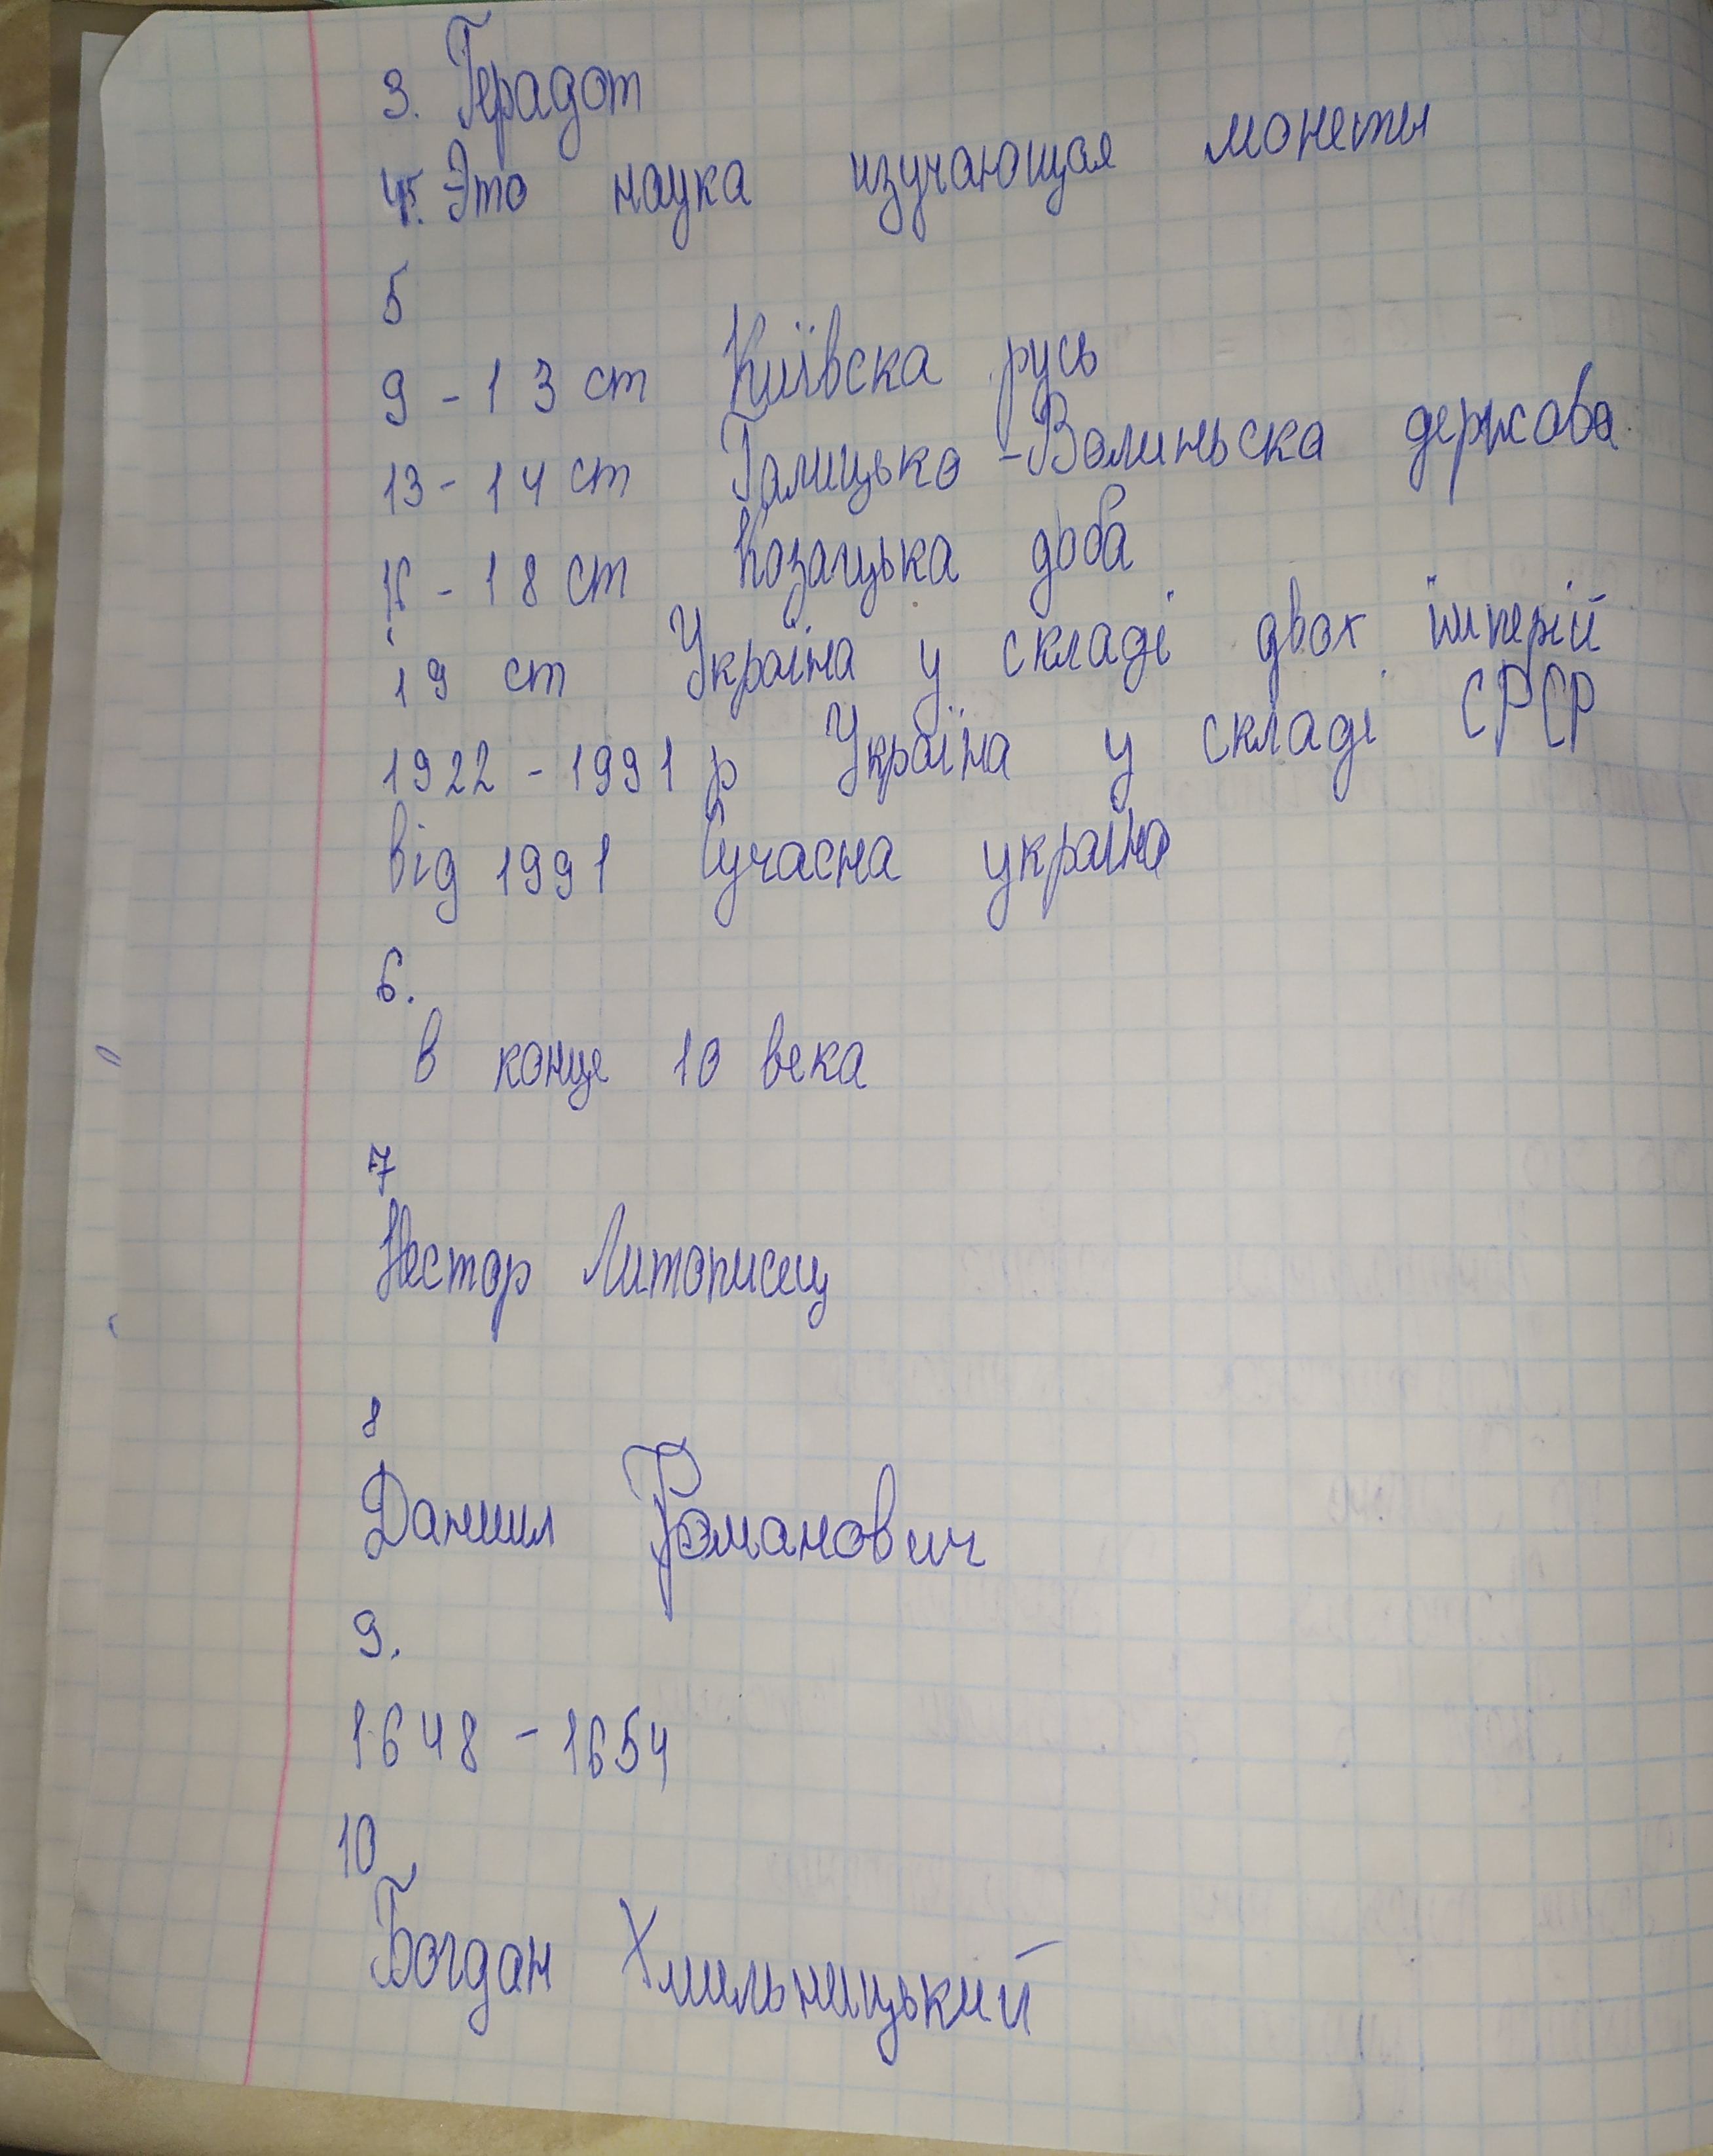 3. Герадот
4. Это наука изучающая монеты
5
9 - 13 ст Київска русь
13 - 14 ст Галицько - Волиньска держава
16 - 18 ст Козацька доба
19 ст Україна у складі двох імперій
1922 - 1991 р Україна у складі СРСР
від 1991 Сучасна україна
6.
в конце 10 века
7
Нестор Литописец
8
Даниил Романович
9.
1648 - 1654
10
Богдан Хмильницький